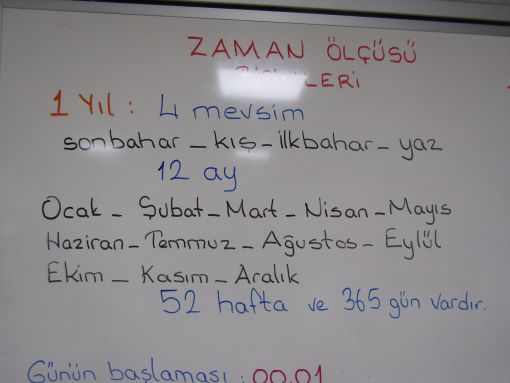 ZAMAN ÖLÇÜSÜ
BİRİMLERİ
1 Yıl : 4 mevsim
sonbahar - kış - ilkbahar - yaz
12 ay
Ocak - Şubat - Mart - Nisan - Mayıs
Haziran - Temmuz - Ağustos - Eylül
Ekim - Kasım - Aralık
52 hafta ve 365 gün vardır.
Günün başlaması : 00.01